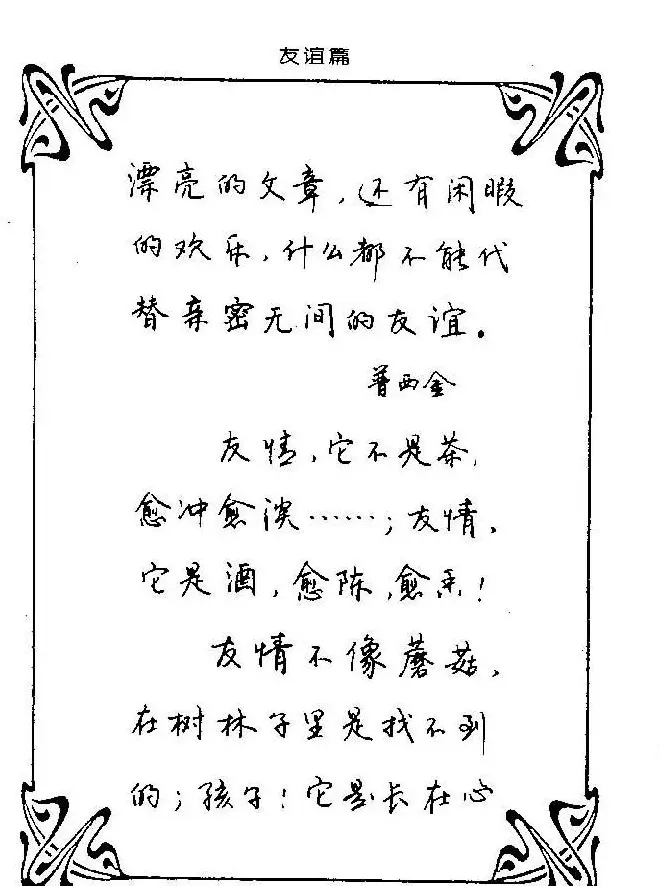 友谊篇
漂亮的文章,还有闲暇
的欢乐,什么都不能代
替亲密无间的友谊。
普西金
友情,它不是茶,
愈冲愈淡……;友情,
它是酒,愈陈,愈香!
友情不像蘑菇,
在树林子里是找不到
的;孩子!它是长在心